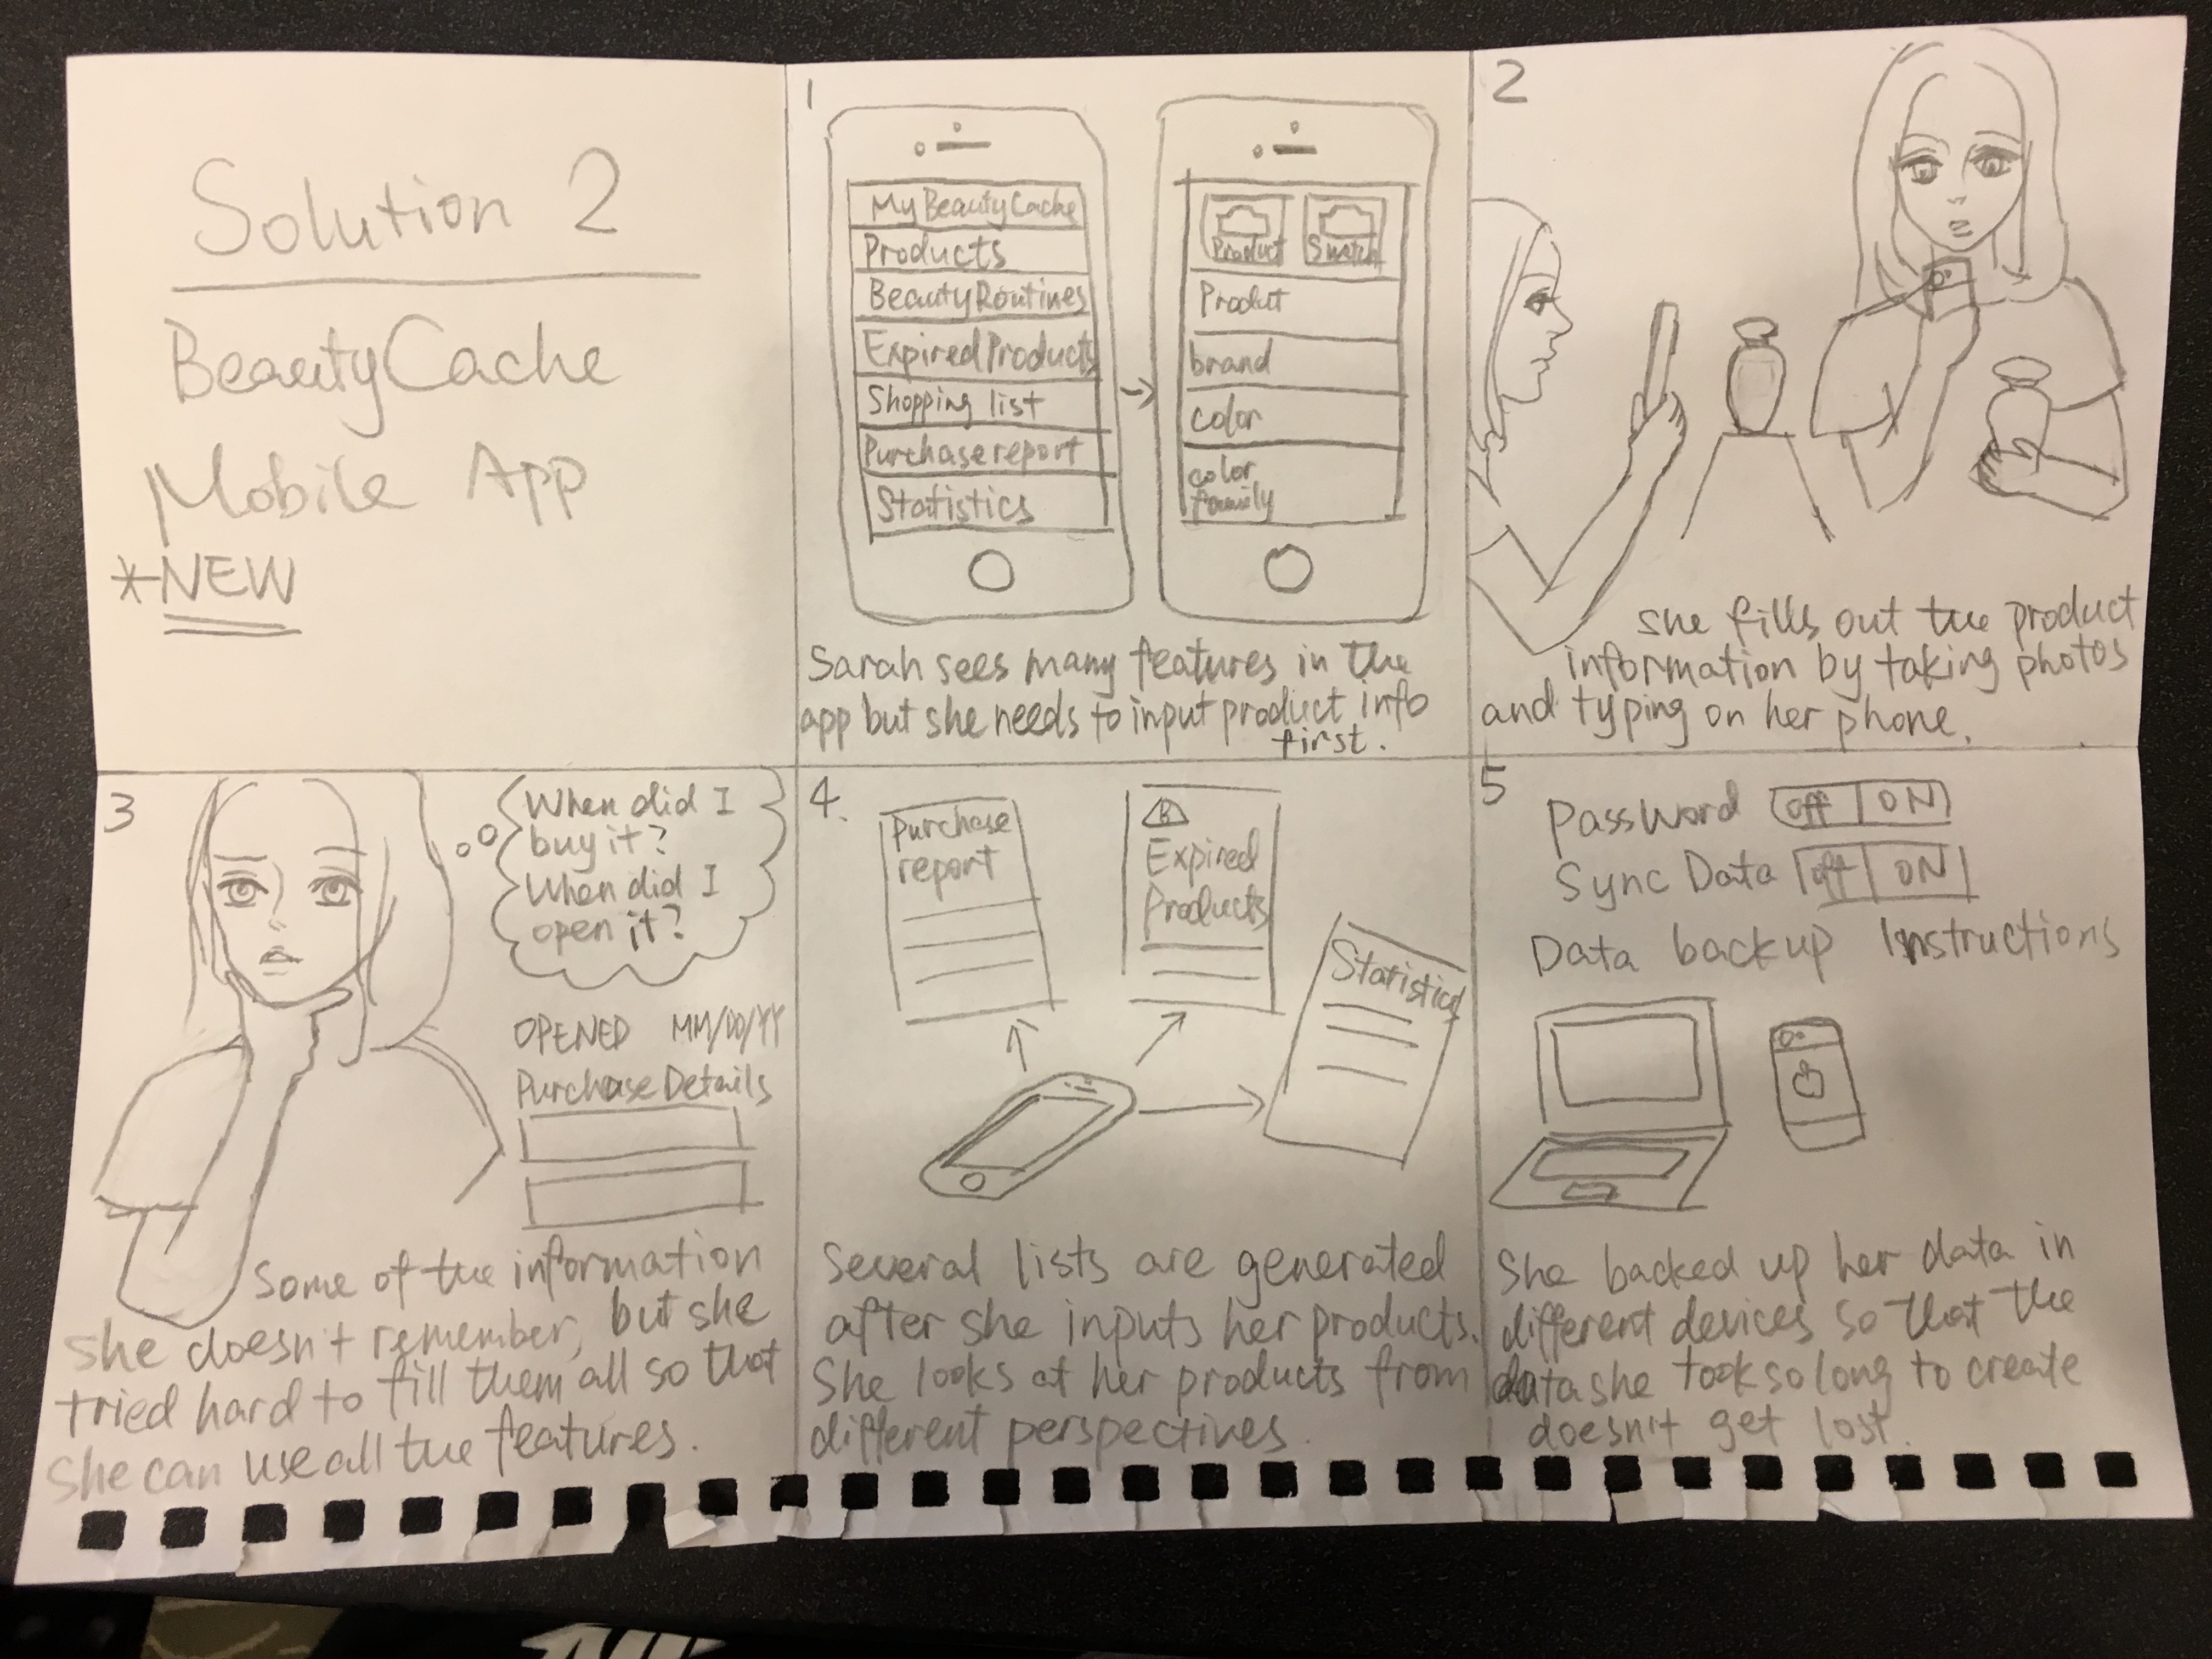 Solution 2
BeautyCache
Mobile App
*NEW
1
MyBeautyCache
Products
BeautyRoutines
ExpiredProducts
Shopping list
Purchase report
Statistics
Product
Swatch
Produt
brand
color
color
family
Sarah sees many features in the
app but she needs to input product info
first.
2
she fills out the product
information by taking photos
and typing on her phone.
3
When did I
buy it?
When did I
open it?
OPENED MM/DD/YY
Purchase Details
Some of the information
she doesn't remember, but she
tried hard to fill them all so that
she can use all the features.
4.
Purchase
report
Expired
Products
Statistics
Several lists are generated
after she inputs her products.
She looks at her products from
different perspectives.
5
Password off ON
Sync Data off ON
Data backup Instructions
She backed up her data in
different devices so that the
data she took so long to create
doesn't get lost.